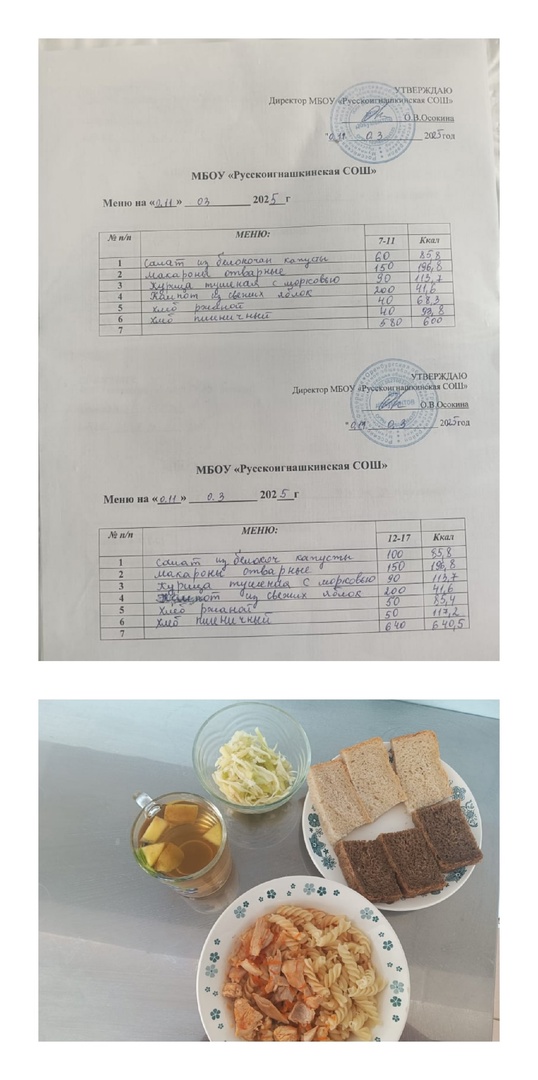 УТВЕРЖДАЮ
Директор МБОУ «Русскоигнашкинская СОШ»
О.В.Осокина
"0.11 0.3 2025год
МБОУ «Русскоигнашкинская СОШ»
Меню на «0.11» 03 2025 г
№ п/п МЕНЮ: 7-11 Ккал
1 Салат из белокочан капусты 60 85,8
2 макароны отварные 150 196,8
3 Курица тушеная с морковью 90 113,7
4 Компот из свежих яблок 200 41,6
5 хлеб ржаной 40 68,3
6 хлеб пшеничный 40 93,8
7 580 600
УТВЕРЖДАЮ
Директор МБОУ «Русскоигнашкинская СОШ»
О.В.Осокина
"0.11 0.3 2025год
МБОУ «Русскоигнашкинская СОШ»
Меню на «0.11» 0.3 2025 г
№ п/п МЕНЮ: 12-17 Ккал
1 Салат из белокоч капусты 100 85,8
2 макароны отварные 150 196,8
3 Курица тушеная с морковью 90 113,7
4 Компот из свежих яблок 200 41,6
5 Хлеб ржаной 50 85,4
6 хлеб пшеничный 50 117,2
7 640 640,5